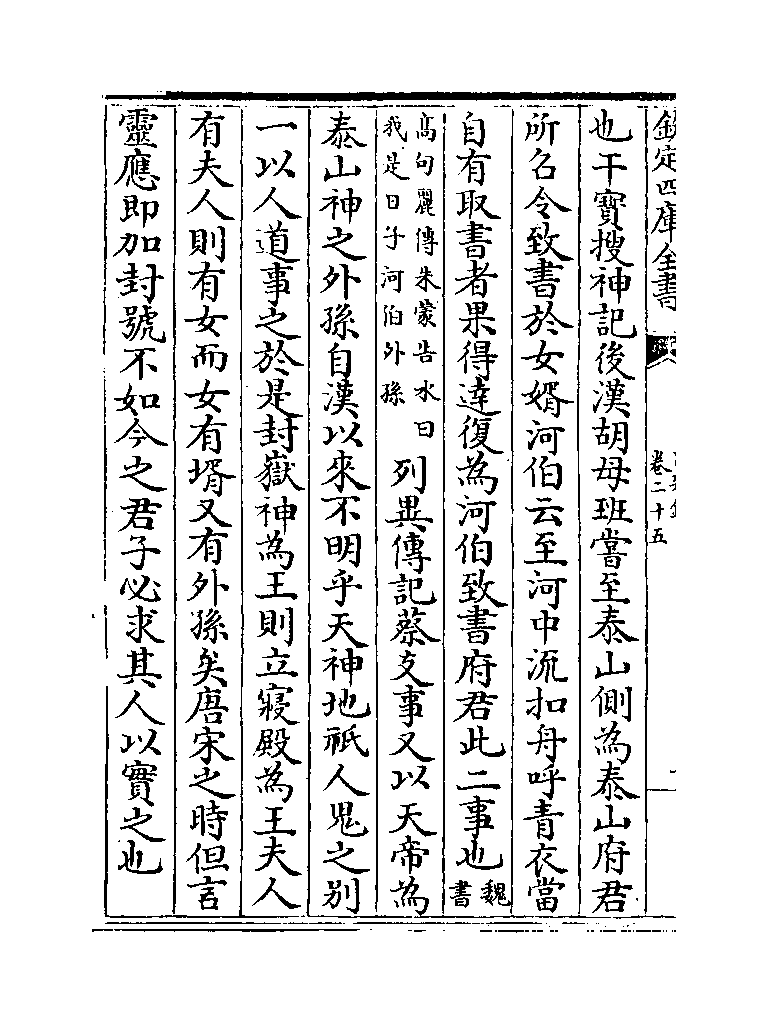 欽定四庫全書
卷二十五
也干寶搜神記後漢胡母班嘗至泰山側為泰山府君
所召令致書於女婿河伯云至河中流扣舟呼青衣當
自有取書者果得達復為河伯致書府君此二事也魏書
高句麗傳朱蒙告水曰我是日子河伯外孫列異傳記蔡支事又以天帝為
泰山神之外孫自漢以來不明乎天神地祇人鬼之别
一以人道事之於是封嶽神為王則立寢殿為王夫人
有夫人則有女而女有壻又有外孫矣唐宋之時但言
靈應即加封號不如今之君子必求其人以實之也